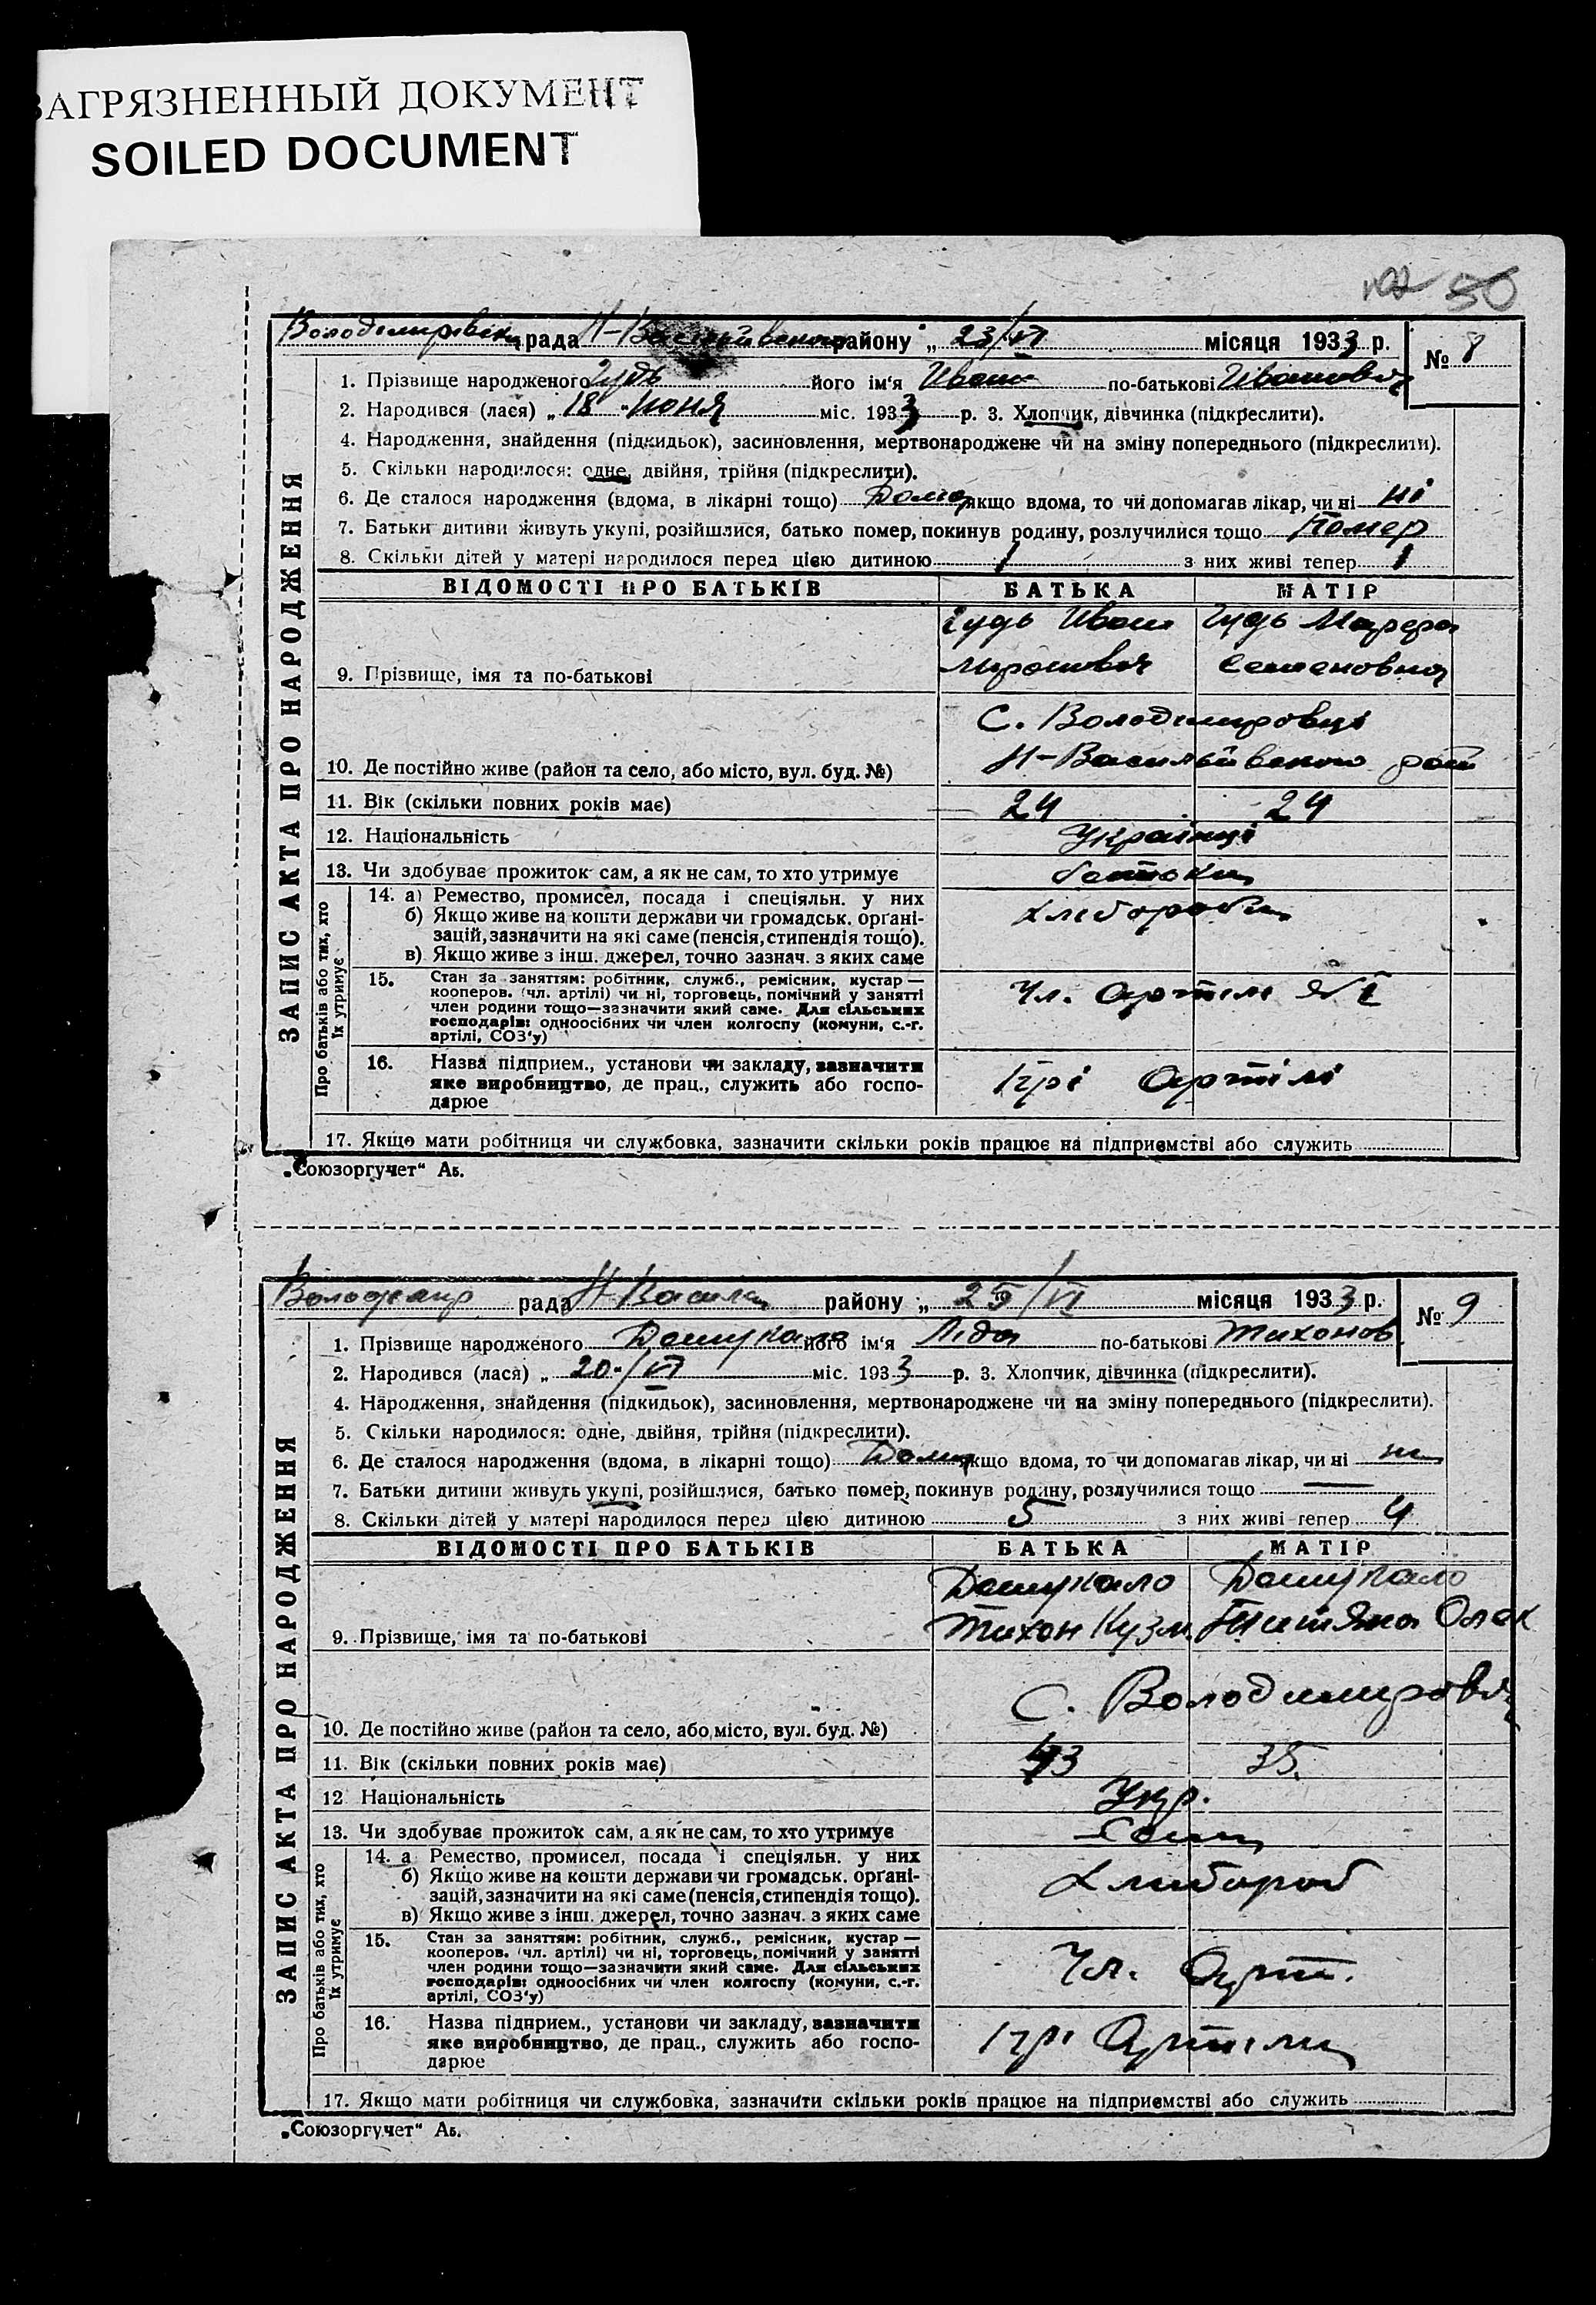 ЗАГРЯЗНЕННЫЙ ДОКУМЕНТ
SOILED DOCUMENT
50
рада Н-Васильївського району „ 23/VI місяця 1933 р. № 8
ЗАПИС АКТА ПРО НАРОДЖЕННЯ
1. Прізвище народженого Гудь його ім‘я Иван по-батькові Иванович
2. Народився (лася) „ 18 “ июня міс. 1933 р. 3. Хлопчик, дівчинка (підкреслити).
4. Народження, знайдення (підкидьок), засиновлення, мертвонароджене чи на зміну попереднього (підкреслити).
5. Скільки народилося: одне, двійня, трійня (підкреслити).
6. Де сталося народження (вдома, в лікарні тощо) Дома якщо вдома, то чи допомагав лікар, чи ні ні
7. Батьки дитини живуть укупі, розійшлися, батько помер, покинув родину, розлучилися тощо Помер
8. Скільки дітей у матері народилося перед цією дитиною 1 з них живі тепер 1
ВІДОМОСТІ ПРО БАТЬКІВ БАТЬКА МАТІР
Гудь Иван Гудь
9. Прізвище, імя та по-батькові Миронович Семеновна
С. Володимировці
10. Де постійно живе (район та село, або місто, вул. буд. №) Н-Васильївского
11. Вік (скільки повних років має) 24 24
12. Національність Українці
13. Чи здобуває прожиток сам, а як не сам, то хто утримує батьки
Про батьків або тих, хто їх утримує
14. а) Ремество, промисел, посада і спеціяльн. у них
б) Якщо живе на кошти держави чи громадськ. орґані-
зацій, зазначити на які саме (пенсія, стипендія тощо).
в) Якщо живе з інш. джерел, точно зазнач. з яких саме
хлибороби
15. Стан за заняттям: робітник, служб., ремісник, кустар —
кооперов. (чл. артілі) чи ні, торговець, помічний у занятті
член родини тощо—зазначити який саме. Для сільських
господарів: одноосібних чи член колгоспу (комуни, с.-г.
артілі, СОЗ‘у)
Чл. Артили
16. Назва підприєм., установи чи закладу, зазначити
яке виробництво, де прац., служить або госпо-
дарює
При Артілі
17. Якщо мати робітниця чи службовка, зазначити скільки років працює на підприємстві або служить
„Союзоргучет“ Аб.
рада Н-Васил району „ 25/VI місяця 1933 р. № 9
ЗАПИС АКТА ПРО НАРОДЖЕННЯ
1. Прізвище народженого його ім‘я Ліда по-батькові Тихонов
2. Народився (лася) „ 20/VI міс. 1933 р. 3. Хлопчик, дівчинка (підкреслити).
4. Народження, знайдення (підкидьок), засиновлення, мертвонароджене чи на зміну попереднього (підкреслити).
5. Скільки народилося: одне, двійня, трійня (підкреслити).
6. Де сталося народження (вдома, в лікарні тощо) Дома якщо вдома, то чи допомагав лікар, чи ні ни
7. Батьки дитини живуть укупі, розійшлися, батько помер, покинув родину, розлучилися тощо
8. Скільки дітей у матері народилося перед цією дитиною 5 з них живі тепер 4
ВІДОМОСТІ ПРО БАТЬКІВ БАТЬКА МАТІР
9. Прізвище, імя та по-батькові Тихон Кузм. Олек
10. Де постійно живе (район та село, або місто, вул. буд. №) С.
11. Вік (скільки повних років має) 43 35.
12 Національність Укр.
13. Чи здобуває прожиток сам, а як не сам, то хто утримує Сами
Про батьків або тих, хто їх утримує
14. а Ремество, промисел, посада і спеціяльн. у них
б) Якщо живе на кошти держави чи громадськ. орґані-
зацій, зазначити на які саме (пенсія, стипендія тощо).
в) Якщо живе з інш. джерел, точно зазнач. з яких саме
Хлибороб
15. Стан за заняттям: робітник, служб., ремісник, кустар —
кооперов. (чл. артілі) чи ні, торговець, помічний у занятті
член родини тощо—зазначити який саме. Для сільських
господарів: одноосібних чи член колгоспу (комуни, с.-г.
артілі, СОЗ‘у)
Чл. Арт.
16. Назва підприєм., установи чи закладу, зазначити
яке виробництво, де прац., служить або госпо-
дарює
При Артили
17. Якщо мати робітниця чи службовка, зазначити скільки років працює на підприємстві або служить
„Союзоргучет“ Аб.